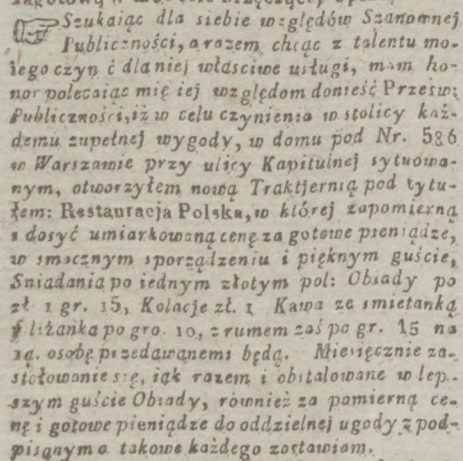 ☞ Szukając dla siebie względów Szanownej
Publiczności, a razem chcąc z talentu mo-
iego czyn ć dla niey właściwe usługi, mam ho-
nor polecaiąc mię iey względom donieść Prześw:
Publiczności, iż w celu czynienia w stolicy każ-
demu zupełney wygody, w domu pod Nr. 586
w Warszawie przy ulicy Kapitulnej sytuowa-
nym, otworzyłem nową Traktjernią pod tytu-
łem: Restauracja Polska, w której zapomierną
i dosyć umiarkowaną cenę za gotowe pieniądze,
w smacznym sporządzeniu i pięknym guście,
Sniadania po iednym złotym pol: Obiady po
zł. 1 gr. 15, Kolacje zł. 1 Kawa ze smietanką
f liżanka po gro. 10, z rumem zaś po gr. 15 na
1ą. osobę przedawanemi będą. Miesięcznie za-
stołowanie się, iak razem i obstalowane w lep-
szym guście Obiady, również za pomierną ce-
nę i gotowe pieniądze do oddzielnej ugody z pod-
pisanym o takowe każdego zostawiam.